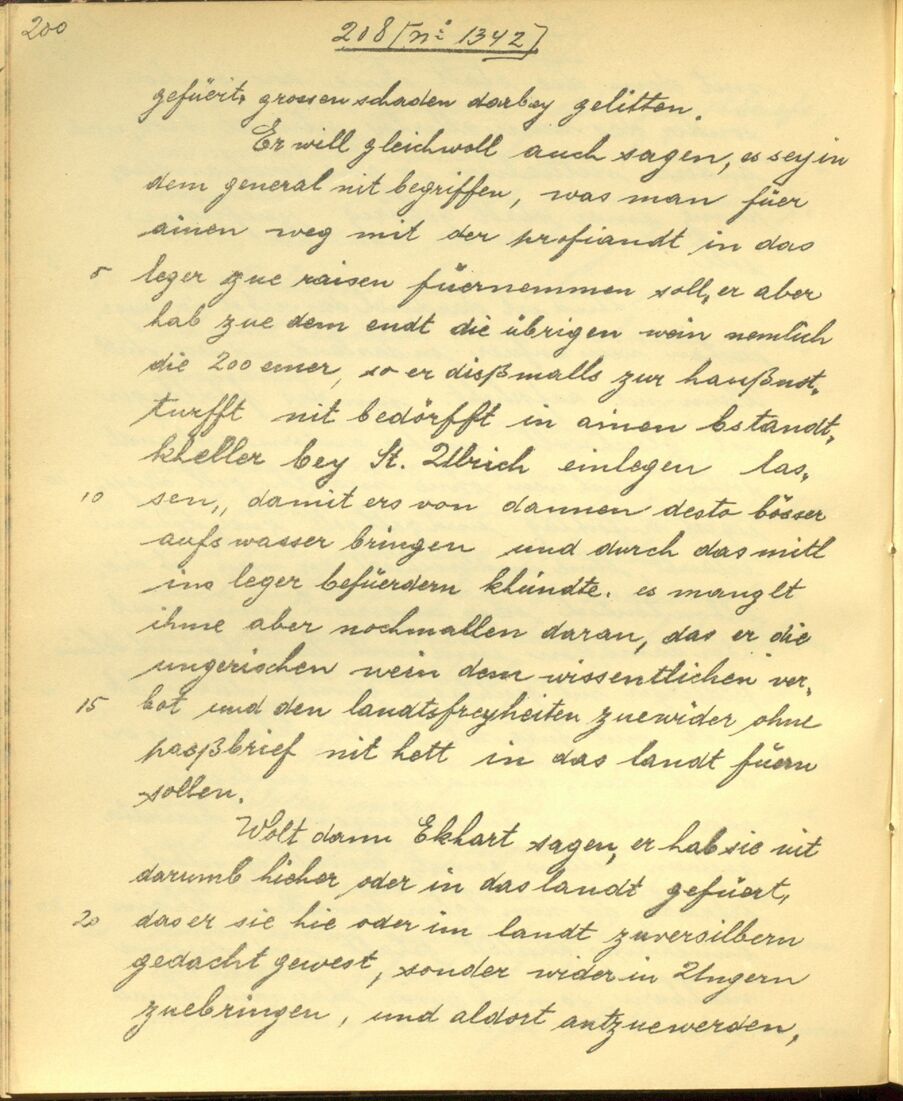 200
208 [nº 1342]
gefüert, grossen schaden darbey gelitten.
Er will gleichwoll auch sagen, es sey in
dem general nit begriffen, was man füer
ainen weg mit der profiandt in das
5 leger zue raisen füernemmen soll, er aber
hab zue dem endt die übrigen wein nemlich
die 200 emer, so er dißmalls zur haußnot,
turfft nit bedörfft in ainen bstandt,
kheller bey St. Ulrich einlegen las,
10 sen,, damit ers von dannen desto bösser
aufs wasser bringen und durch das mitl
ins leger befüerdern khündte. es manglt
ihme aber nochmallen daran, das er die
ungerischen wein dem wissentlichen ver,
15 bot und den landtsfreyheiten zuewider ohne
paßbrief nit hett in das landt füern
sollen.
Wolt dann Ekhart sagen, er hab sie nit
darumb hieher oder in das landt gefüert,
20 das er sie hie oder im landt zuversilbern
gedacht gewest, sonder wider in Ungern
zuebringen, und aldort antzuewerden,